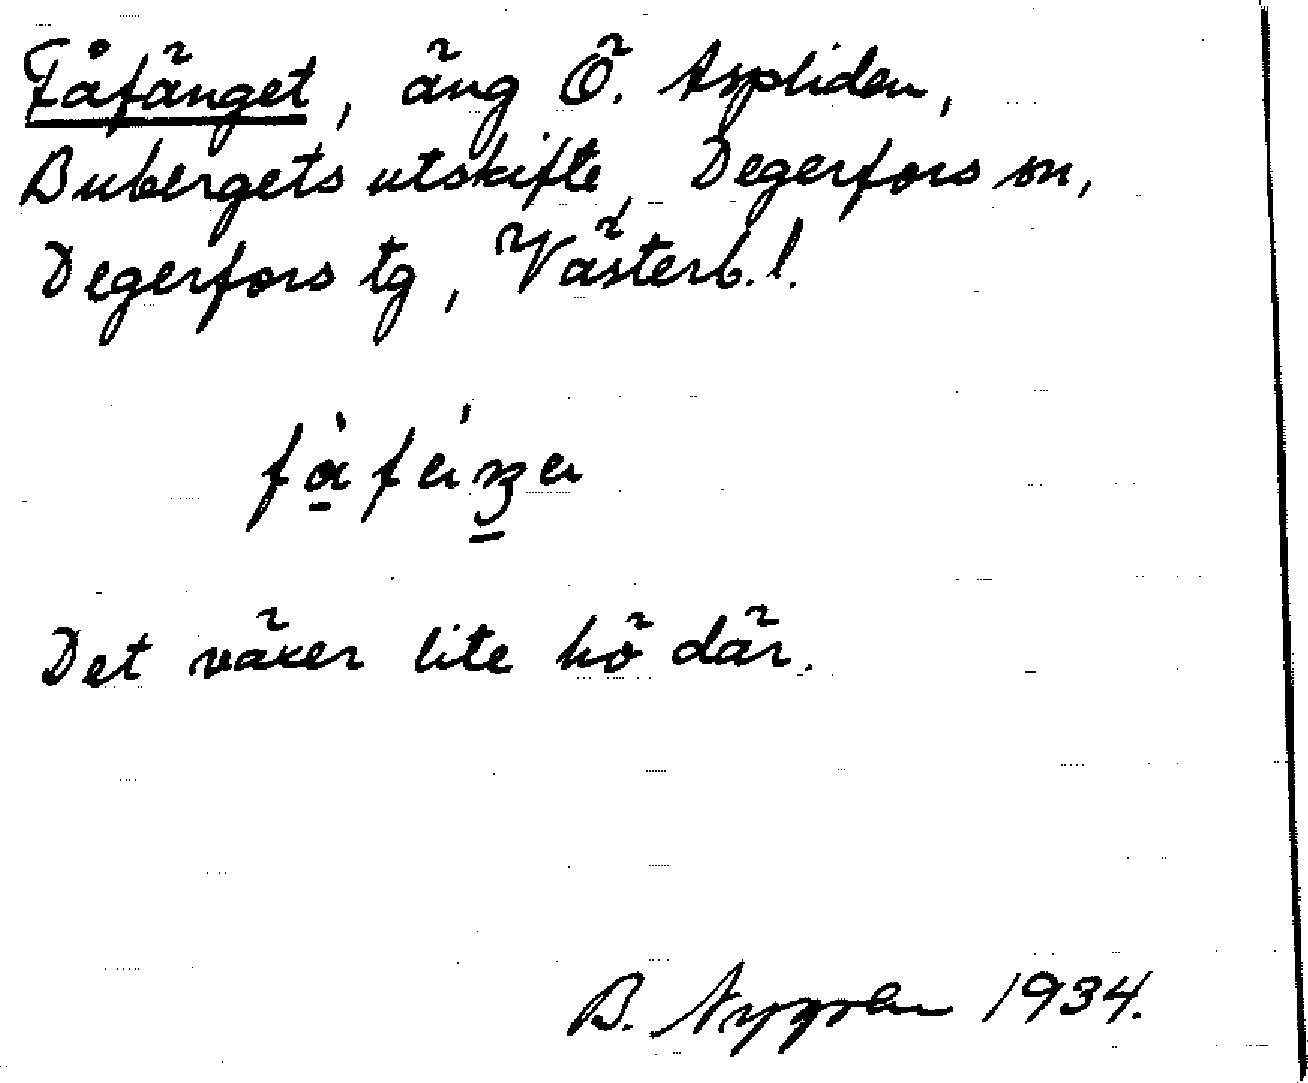 Fåfänget, äng Ö. Aspliden,
Bubergets utskifte, Degerfors sn,
Degerfors tg, Västerb. l.
Det växer lite hö där.
B. Nygren 1934.